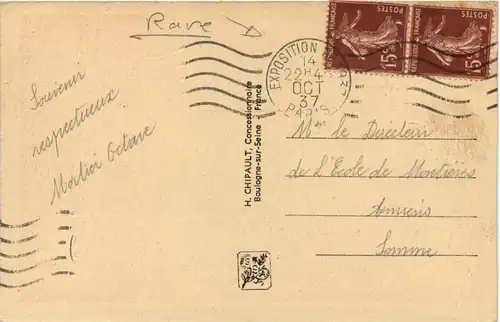 Rare
POSTES
15c
REPUBLIQUE FRANÇAISE
POSTES
15c
EXPOSITION
14
22H45
OCT
37
PARIS
Souvenir
respectueux
Octave
H. CHIPAULT, Concessionnaire
Boulogne-sur-Seine - France
Mr le Directeur
de l'Ecole de Montières
Amiens
Somme